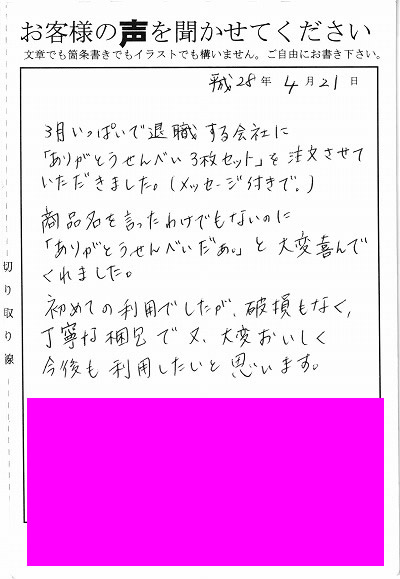 お客様の声を聞かせてください
文章でも箇条書きでもイラストでも構いません。ご自由にお書き下さい。
平成28年4月21日
3月いっぱいで退職する会社に
「ありがとうせんべい3枚セット」を注文させて
いただきました。(メッセージ付きで。)
商品名を言ったわけでもないのに
「ありがとうせんべいだぁ。」と大変喜んで
くれました。
初めての利用でしたが、破損もなく、
丁寧な梱包で又、大変おいしく
今後も利用したいと思います。
切り取り線